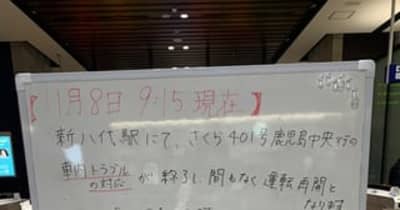 【1月8日 9:15 現在】
新八代駅にて、さくら401号鹿児島中央行の
車内トラブルの対応が終了し、間もなく運転再開と
なり